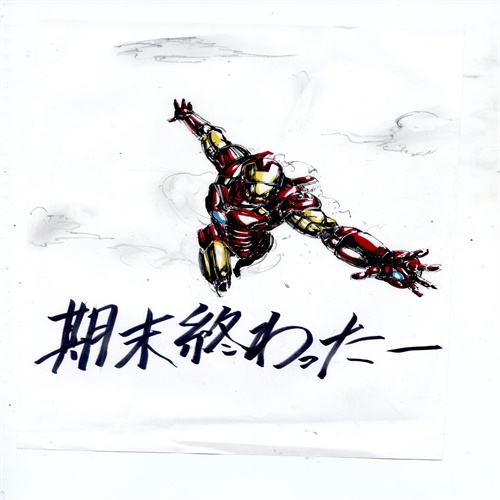 期末終わったー